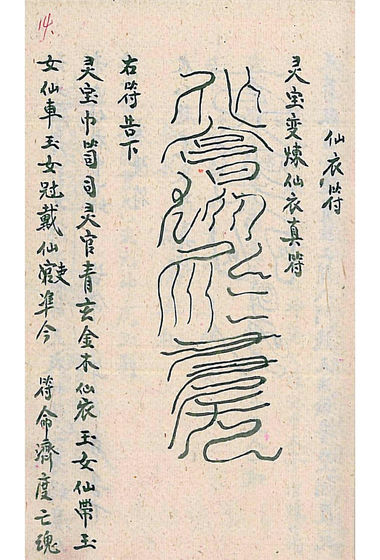 仙衣符
灵宝变煉仙衣真符
右符告下
灵宝巾笥司灵官青玄金木仙衣玉女仙帶玉
女仙車玉女冠戴仙吏準今 符命濟度亡魂
14.